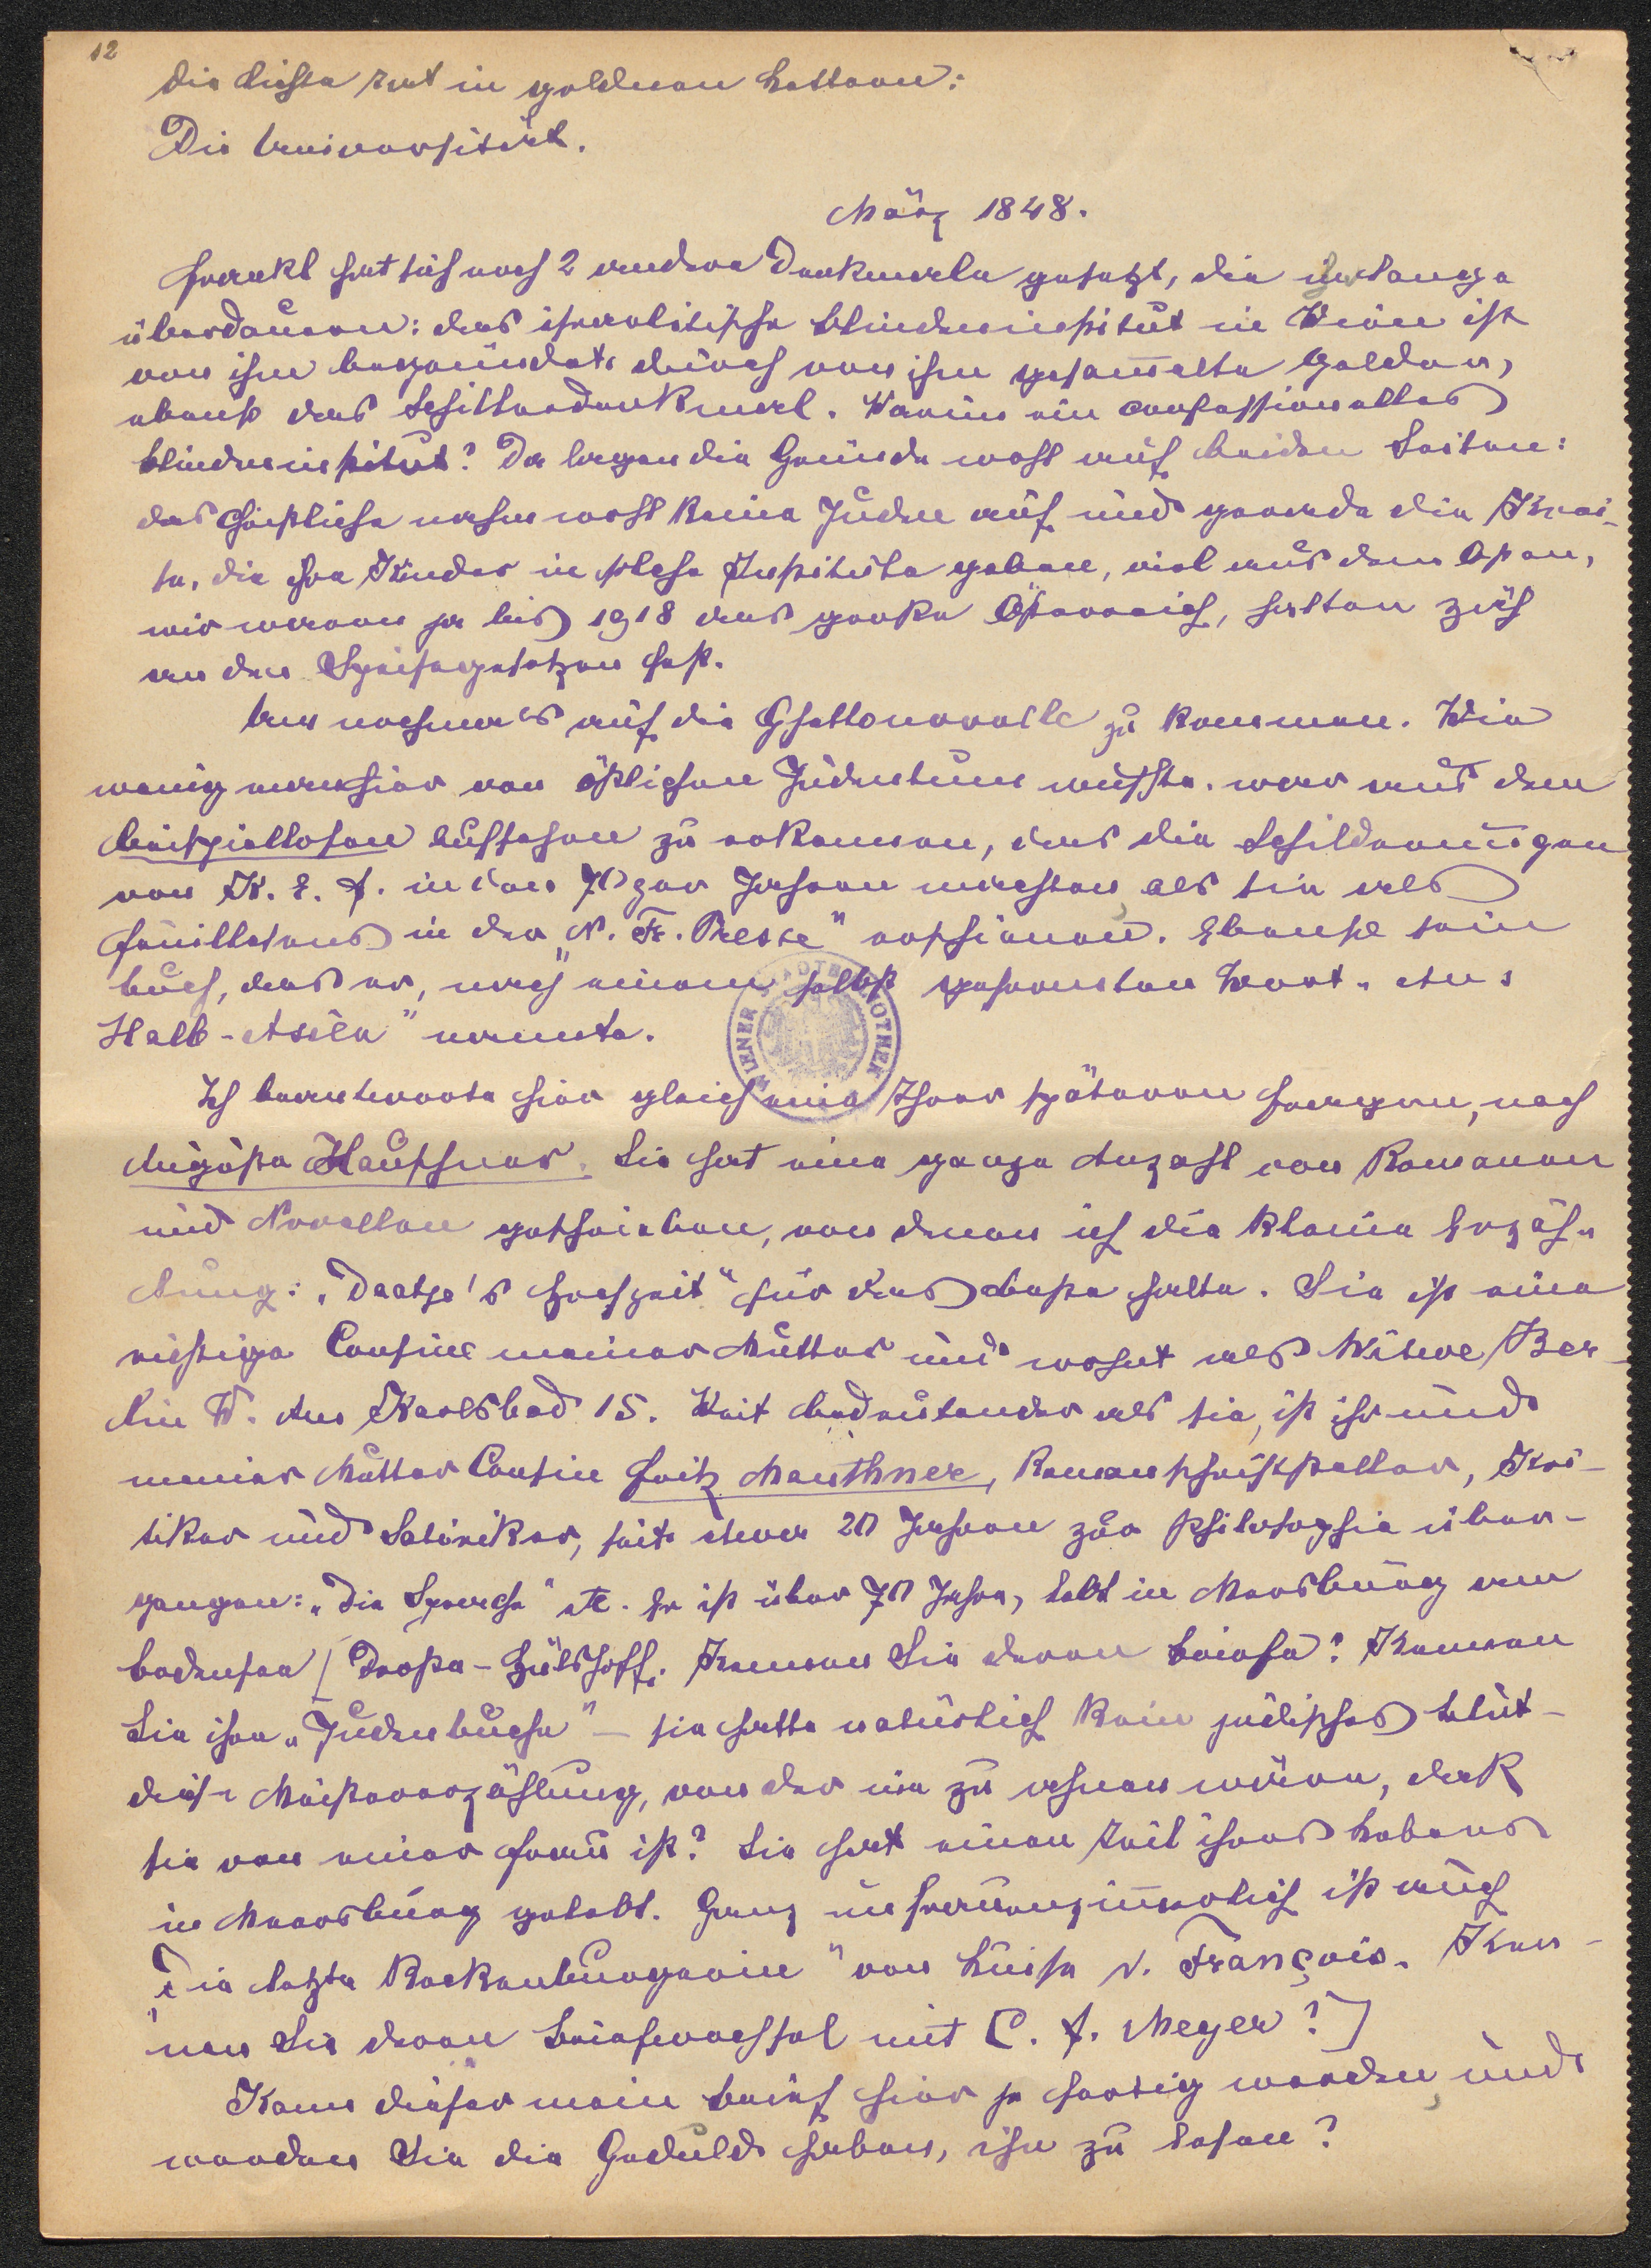 12
die Liste rat in goldnen Lettern:
Die Universität.
März 1848.
Frankl hat sich noch 2 andere Denkmale gesetzt, die ihn lange
überdauern: das israelitische Blindeninstitut in Wien ist
von ihm begründet durch von ihm gesam̅elte Gelder,
ebenso das Schillerdenkmal. Warum ein confessionelles
Blindeninstitut? Da lagen die Gründe wohl auf beiden Seiten:
das christliche nahm wohl keine Juden auf und gerade die Krei-
se, die ihre Kinder in solche Institute gaben, viel aus dem Osten,
wir waren ja bis 1918 das große Österreich, halten zäh
an den Speisegesetzen fest.
Um nochmals auf die Ghettonovelle zu kommen. Wie
wenig man hier von östlichen Judentum wußte, war aus dem
beispiellosen Aufsehen zu erkennen, das die Schilderungen
von K. E. F. in den 70ger Jahren machten, als sie als
Feuilletons in der „N. Fr. Presse" erschienen. Ebenso sein
Buch, das er, nach einem selbst geformten Wort „Aus
Halb-Asien" nannte.
WIENER STADTBIBLIOTHEK
Ich beantworte hier gleich eine Ihrer späteren Fragen, nach
Auguste Hauschner. Sie hat eine ganze Anzahl von Romanen
und Novellen geschrieben, von denen ich die kleine Erzäh-
lung: „Daatje's Hochzeit" für das beste halte. Sie ist eine
richtige Cousine meiner Mutter und wohnt als Witwe Ber-
lin W. Am Karlsbad 15. Weit bedeutender als sie, ist ihr und
meiner Mutter Cousin Fritz Mauthner, Romanschriftsteller, Kri-
tiker und Satiriker, seit etwa 20 Jahren zur Philosophie über-
gangen: „Die Sprache" etc. Er ist über 70 Jahre, lebt in Meersburg am
Bodensee [Droste-Hülshoff. Kennen Sie deren Briefe? Kennen
Sie ihre „Judenbuche" – sie hatte natürlich kein jüdisches Blut –
diese Meistererzählung, von der nie zu ahnen wäre, daß
sie von einer Frau ist? Sie hat einen Teil ihres Lebens
in Meersburg gelebt. Ganz unfrauenzim̅erlich ist auch
„Die letzte Reckenburgerin" von Luise v. François. Ken-
nen Sie deren Briefwechsel mit C. F. Meyer?]
Kann dieser mein Brief hier je fertig werden, und
werden Sie die Geduld haben, ihn zu lesen?